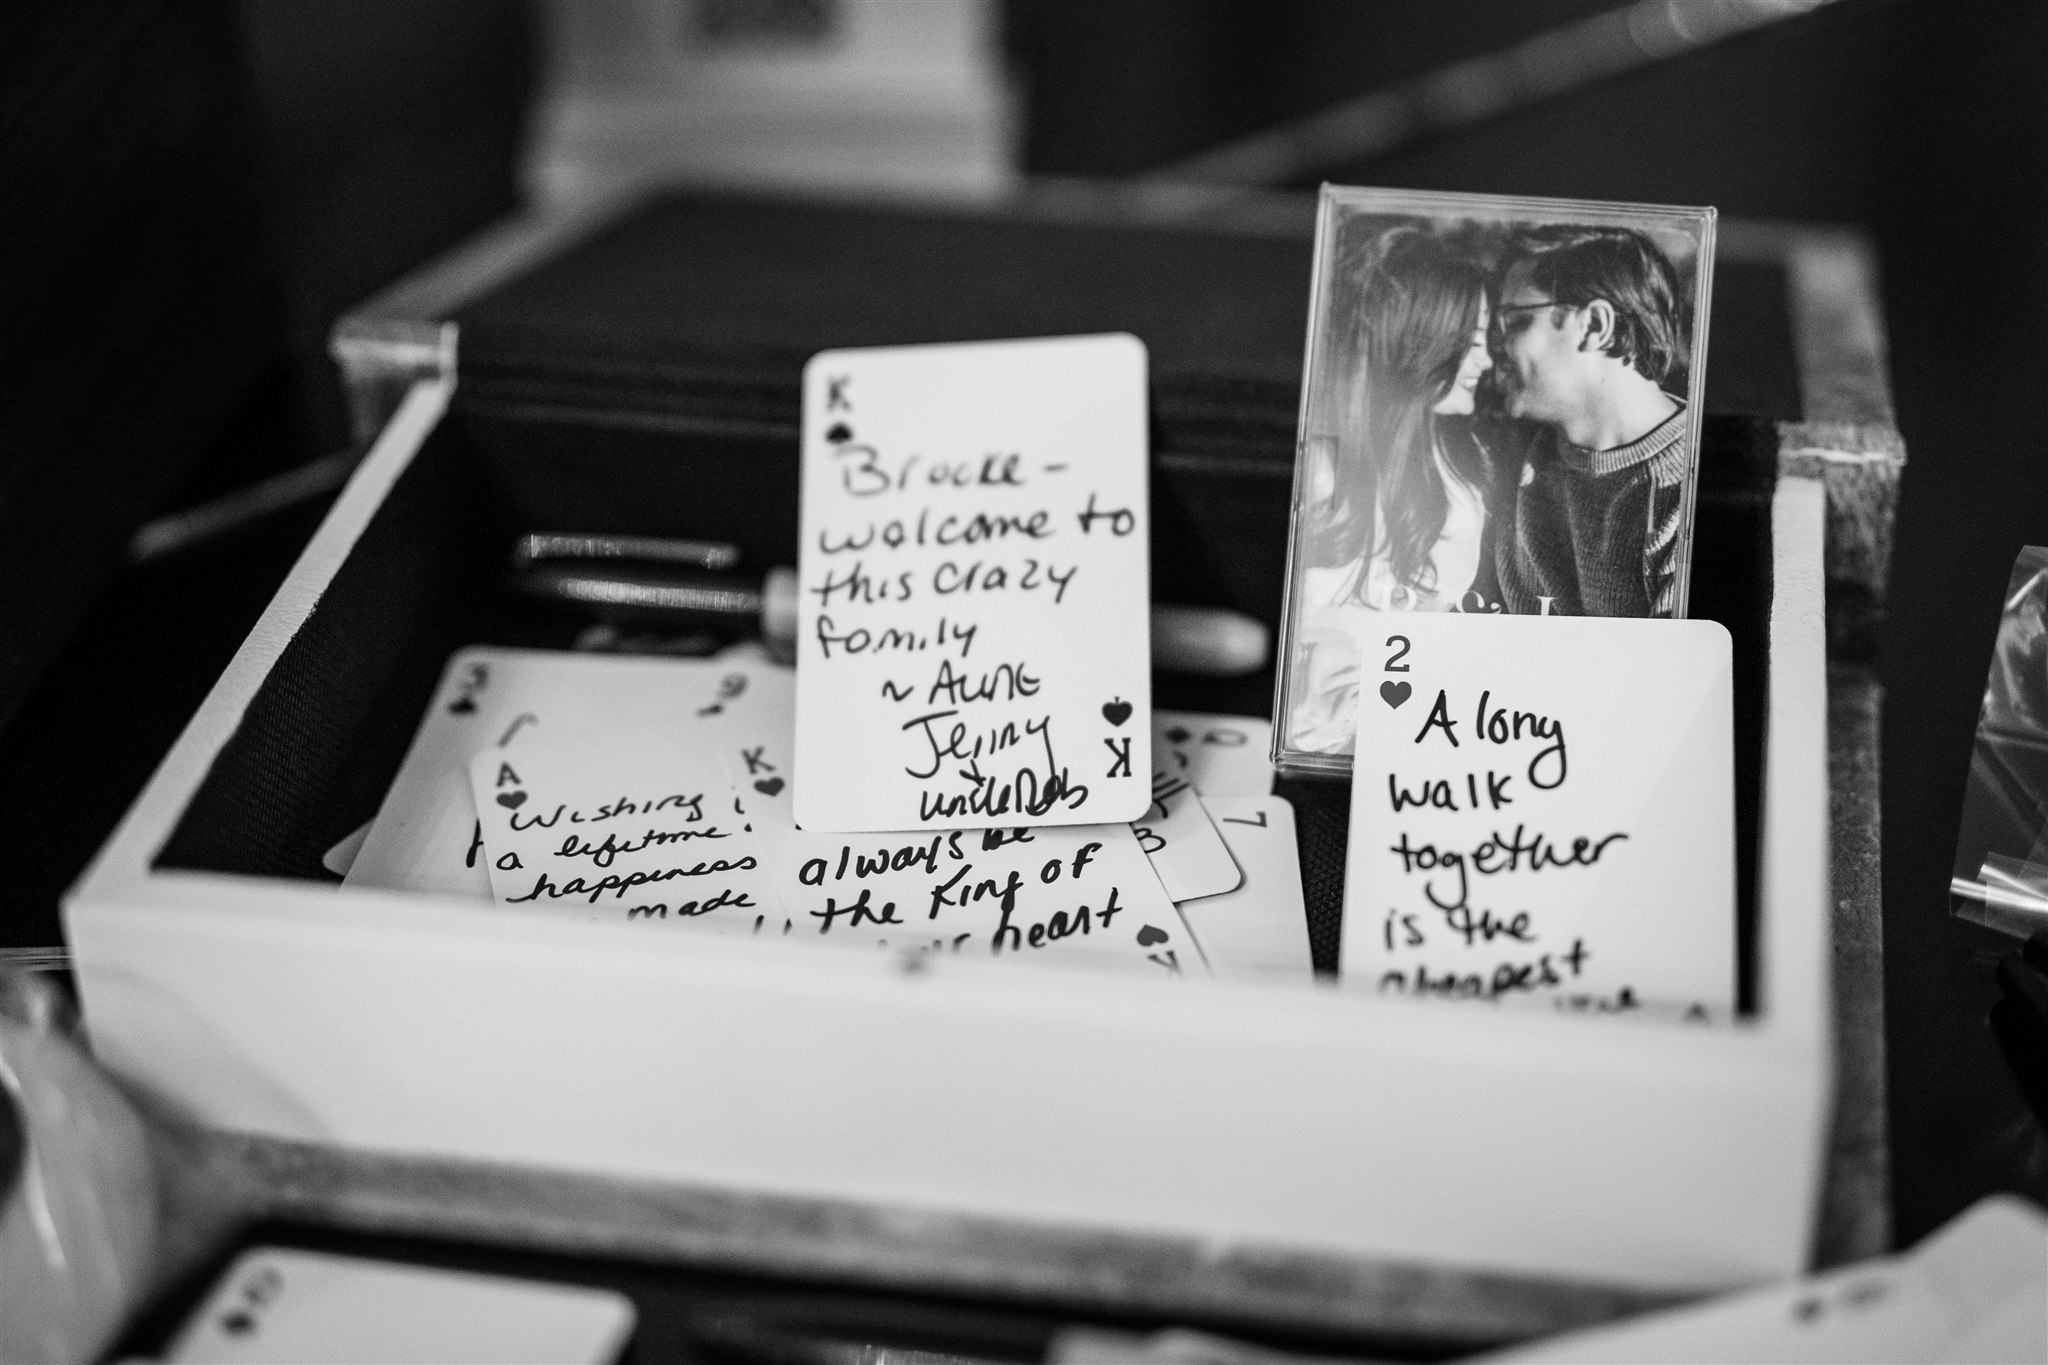 K
Brooke -
welcome to
this crazy
family
~ Aunt
Jenny
+
uncle Rob
K
3
9
A
Wishing
a lifetime
happiness
made
K
always be
the King of
heart
K
3
7
2
A long
walk
together
is the
cheapest